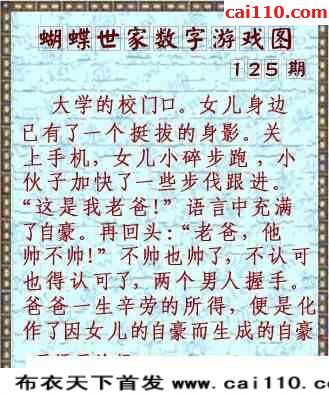 cai110.com
蝴蝶世家数字游戏图
125期
大学的校门口。女儿身边
已有了一个挺拔的身影。关
上手机，女儿小碎步跑，小
伙子加快了一些步伐跟进。
“这是我老爸!”语言中充满
了自豪。再回头:“老爸，他
帅不帅!”不帅也帅了，不认可
也得认可了，两个男人握手。
爸爸一生辛劳的所得，便是化
作了因女儿的自豪而生成的自豪
布衣天下首发 www.cai110.c